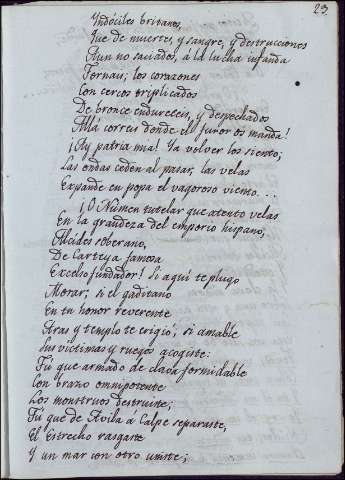 23.
Indóciles britanos,
Que de muertes, y sangre, y destrucciones
Aun no saciados, á la lucha infanda
Tornais; los corazones
Con cercos triplicados
De bronce endureceis, y despechados
Allá correis donde el furor os manda!
¡Ay patria mia! Ya volver los siento;
Las ondas ceden al pasar, las velas
Expande en popa el vagoroso viento...
¡O Númen tutelar que atento velas
En la grandeza del emporio hispano,
Alcides soberano,
De Carteya famosa
Excelso fundador! Si aquí te plugo
Morar; si el gaditano
En tu honor reverente
Aras y templo te erigió; si amable
Sus víctimas y ruegos acogiste:
Tú que armado de clava formidable
Con brazo omnipotente
Los monstruos destruiste;
Tú que de Avila á Calpe separaste,
El Estrecho rasgaste
Y un mar con otro uniste;